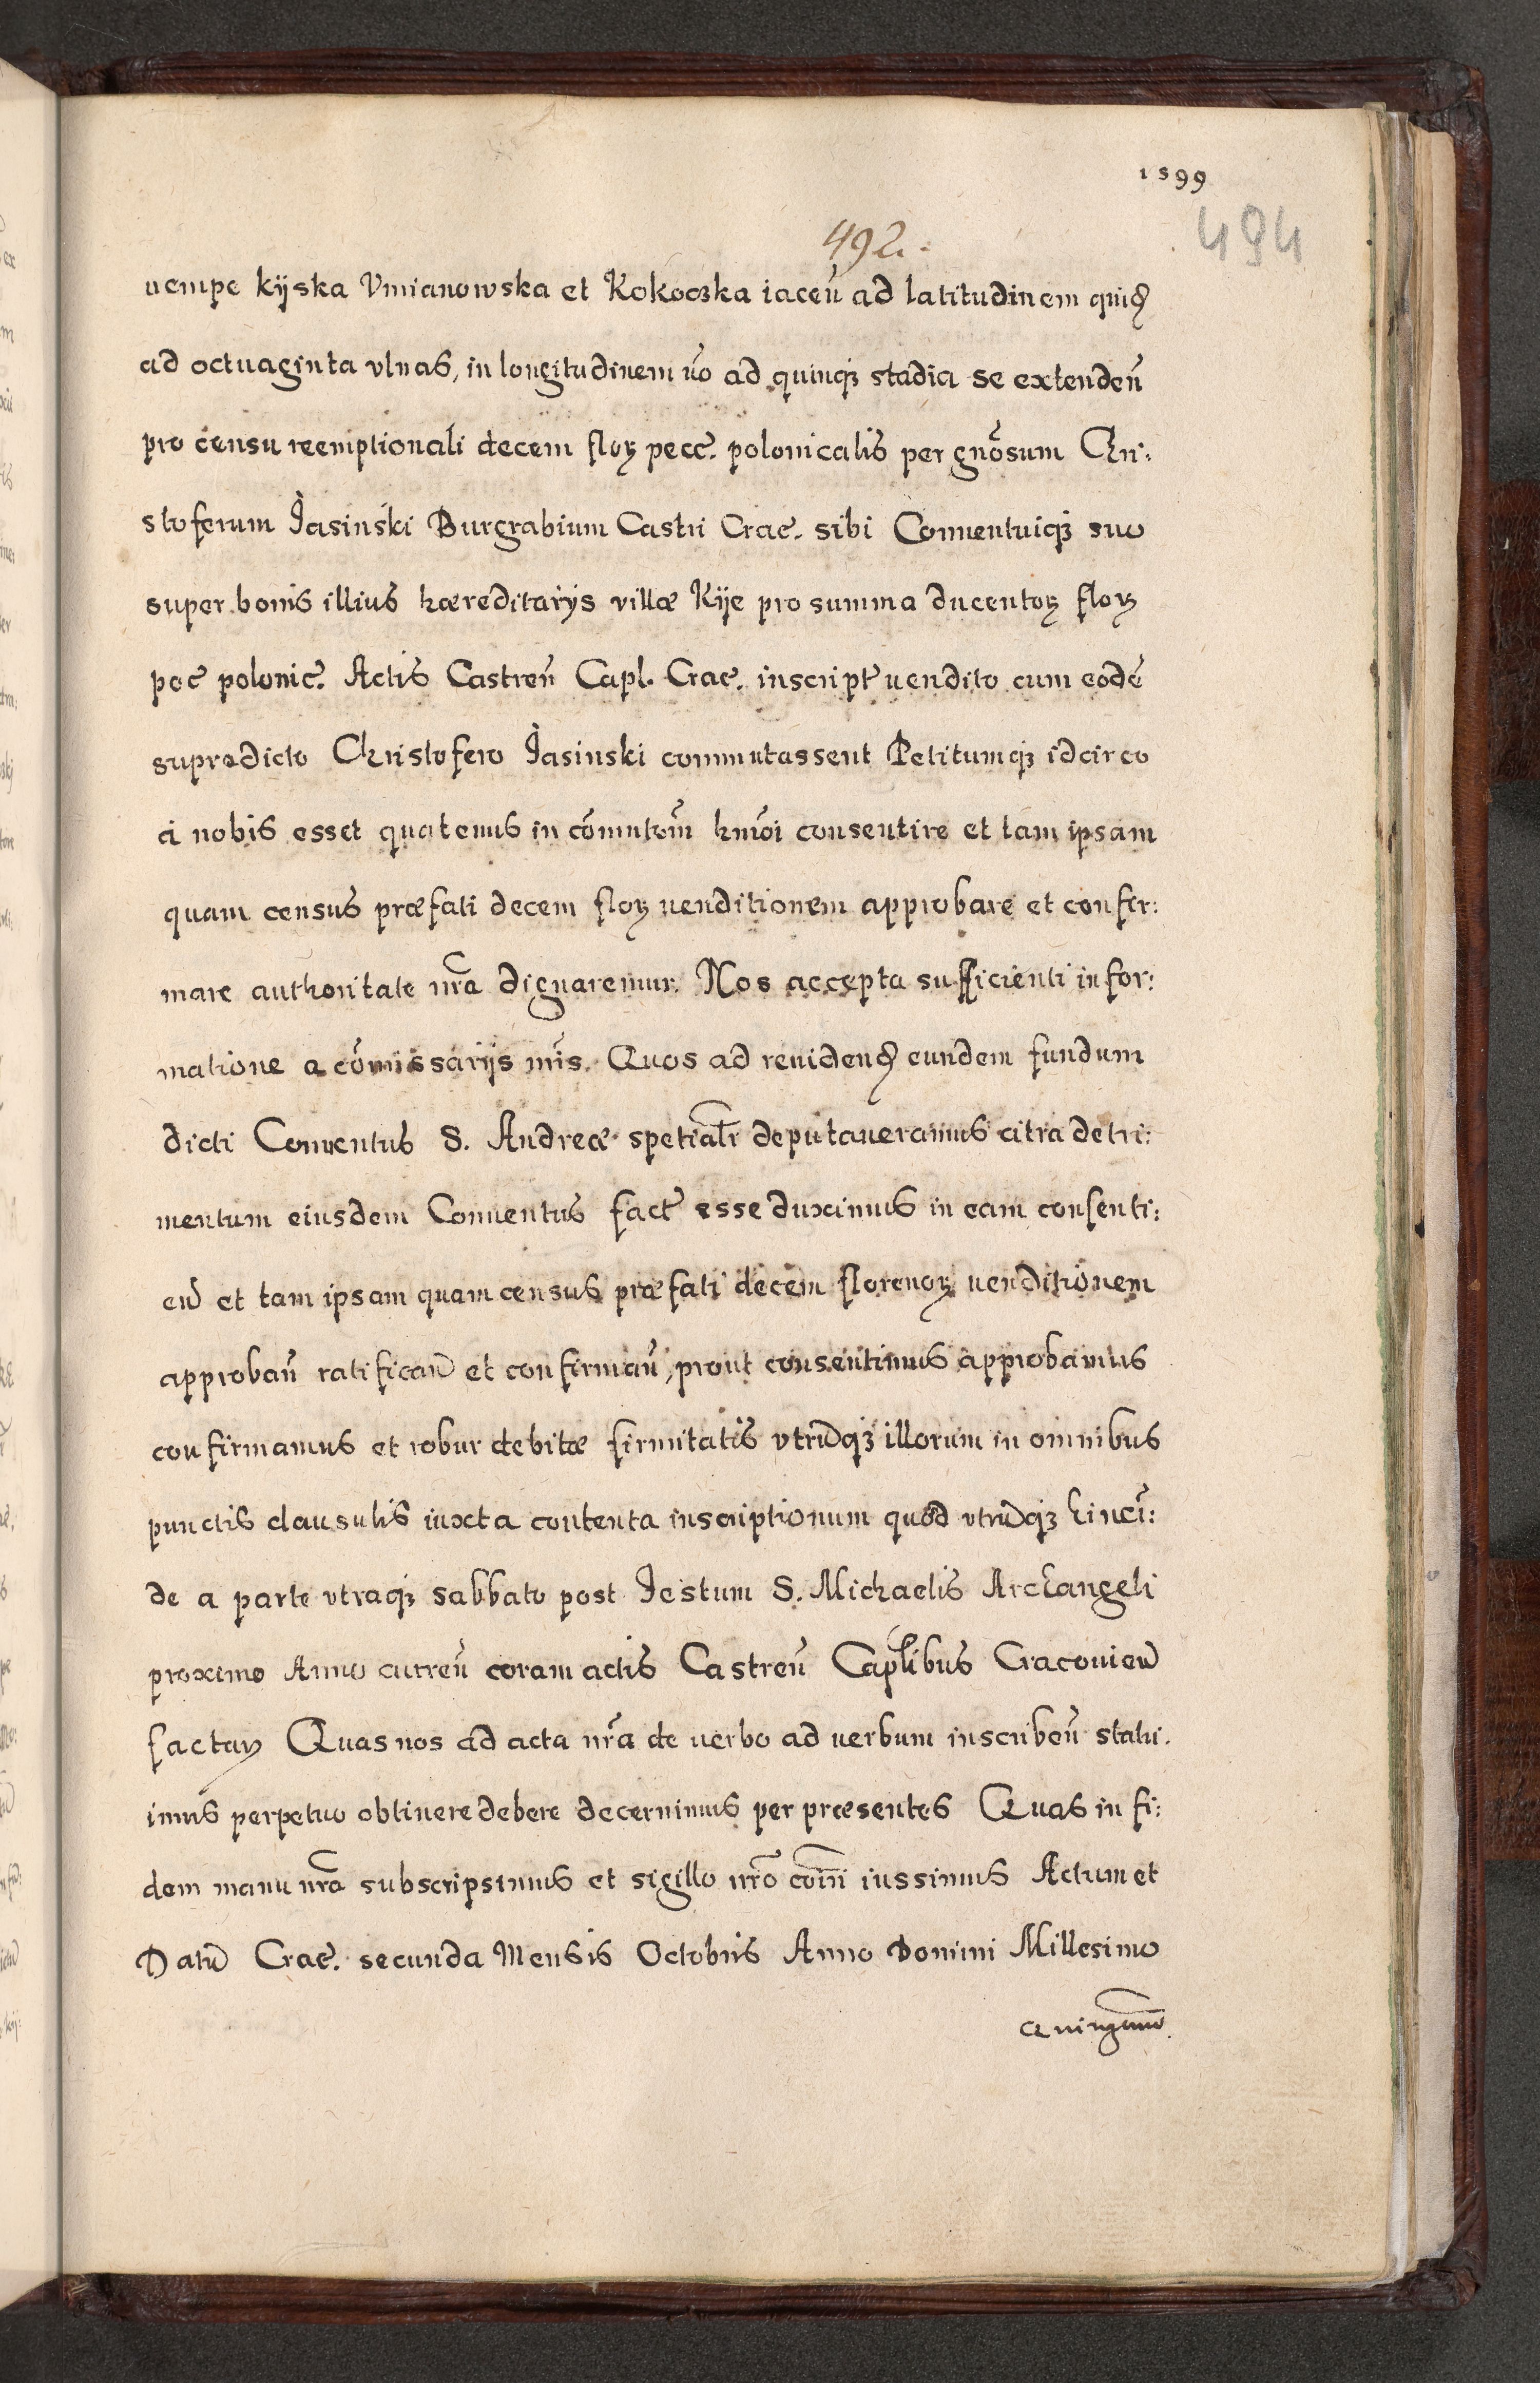 1599
492.
494
nempe Kijska Vmianowska et Kokoczka iaceñ ad latitudinem quid
ad octuaginta vlnas, in longitudinem ṽo ad quinqꝫ stadia se extendeñ
pro censu reemptionali decem floꝝ pecc. polonicalis per gñosum Chri:
stoferum Jasinski Burgrabium Castri Crac. sibi Conuentuiqꝫ suo
super bonis illius hæreditarÿs villæ Kÿe pro summa ducentoꝝ floꝝ
pec polonic. Actis Castreñ Capl. Crac. inscript uendito cum eodẽ
supradicto Christofero Jasinski commutassent Petitumqꝫ idcirco
a nobis esset quatenus in cõmutom̃ hmõi consentire et tam ipsam
quam census præfati decem floꝝ uenditionem approbare et confir:
mare authoritate nr̃a dignaremur. Nos accepta sufficienti infor:
matione a cõmissarijs nr̃is. Quos ad reuidend eundem fundum
dicti Conuentus S. Andreæ spetialr̃ deputaueramus citra detri:
mentum eiusdem Conuentus fact esse duximus in eam consenti:
eñ et tam ipsam quam census præfati decem florenoꝝ uenditionem
approbañ ratificañ et confirmañ, prout consentimus approbamus
confirmamus et robur debitæ firmitatis vtrũqꝫ illorum in omnibus
punctis clausulis iuxta contenta inscriptionum quod vtrũqꝫ hinci:
de a parte vtraqꝫ sabbato post Festum S. Michaelis Archangeli
proximo Anno curreñ coram actis Castreñ Caplibus Cracouieñ
factaꝝ Quas nos ad acta nr̃a de uerbo ad uerbum inscribeñ statu.
imus perpetuo obtinere debere decernimus per præsentes Quas in fi:
dem manu nr̃a subscripsimus et sigillo nr̃o com̃i iussimus Actum et
Datũ Crac. secunda Mensis Octobris Anno Domini Millesimo
Quingmo